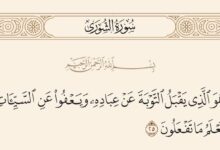 سُورَةُ الشُّورَىٰ
بِسْمِ ٱللَّهِ ٱلرَّحْمَٰنِ ٱلرَّحِيمِ
هُوَ ٱلَّذِى يَقْبَلُ ٱلتَّوْبَةَ عَنْ عِبَادِهِۦ وَيَعْفُوا۟ عَنِ ٱلسَّيِّـَٔاتِ
يَعْلَمُ مَا تَفْعَلُونَ ٢٥